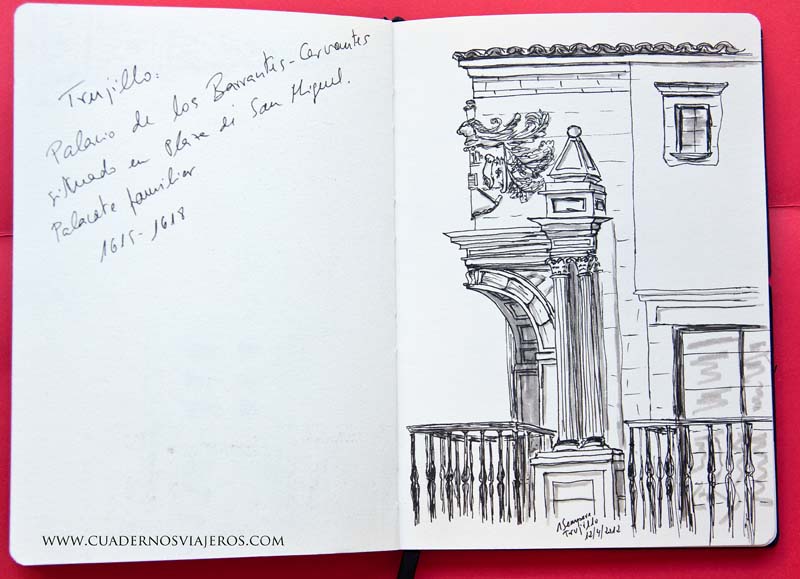 Trujillo:
Palacio de los Barrantes-Cervantes
situado en Plaza di San Miguel.
Palacete familiar
1615-1618
WWW.CUADERNOSVIAJEROS.COM
Trujillo
12/4/2012